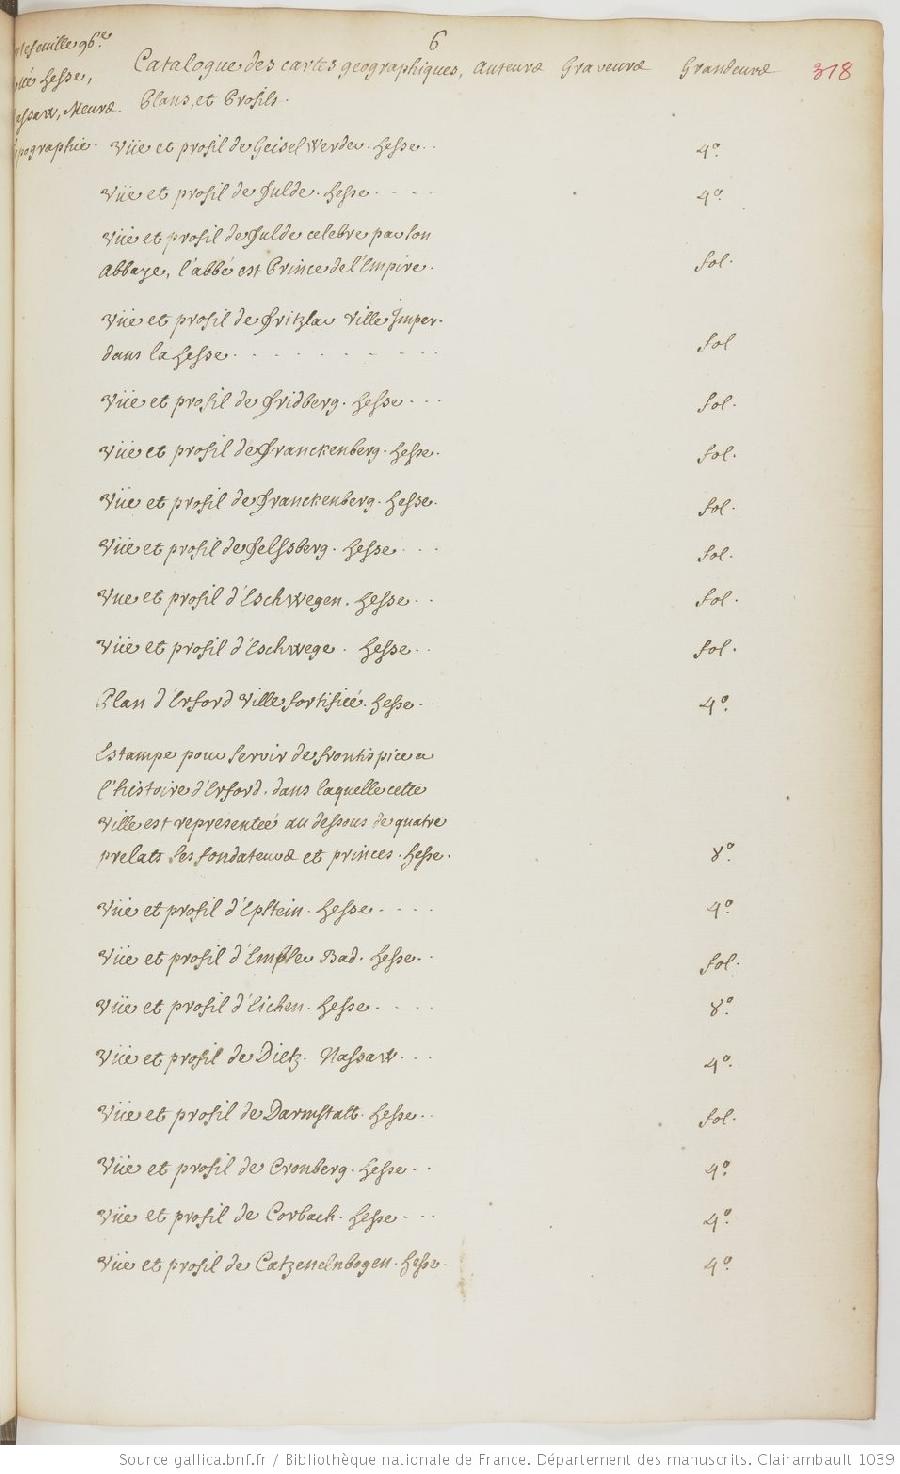 6
tefeuille 96.e
Hesse,
Catalogue des cartes geographiques, Auteurs Graveurs Grandeurs 318
Nassaw, Meurs.
Plans, et Profils.
Topographie.
Vüe et profil de Geisel Werder. Hesse. . 4.º
Vüe et profil de Fulde. Hesse. - - - - 4.º
Vüe et profil de Fulde celebre par son
Abbaye, l'abbé est Prince de l'Empire. fol.
Vüe et profil de Fritzlar Ville Imper.
dans la Hesse. - - - - - - - - fol
Vüe et profil de Fridberg. Hesse. . . fol.
Vüe et profil de Franckenberg. Hesse. fol.
Vüe et profil de Franckenberg. Hesse. fol.
Vüe et profil de Felssberg. Hesse. . . fol.
Vue et profil d'Eschwegen. Hesse. . fol.
Vüe et profil d'Eschwege. Hesse. . fol.
Plan d'Erford Ville fortifiée. Hesse. 4.º
Estampe pour servir de frontispice a
l'histoire d'Erford, dans laquelle cette
Ville est representeé au dessous de quatre
prelats ses fondateurs et princes. Hesse. 8.º
Vüe et profil d'Epstein. Hesse. . . . 4.º
Vüe et profil d' Bad. Hesse. . fol.
Vüe et profil d'Eichen. Hesse. . . . 8.º
Vüe et profil de Dietz. Nassaw. . . 4.º
Vüe et profil de Darmstatt. Hesse. . fol.
Vüe et profil de Cronberg. Hesse. . . 4.º
Vüe et profil de Corbach. Hesse. . . 4.º
Vüe et profil de Catzenelnbogen. Hesse 4.º
Source gallica.bnf.fr / Bibliothèque nationale de France. Département des manuscrits. Clairambault 1039